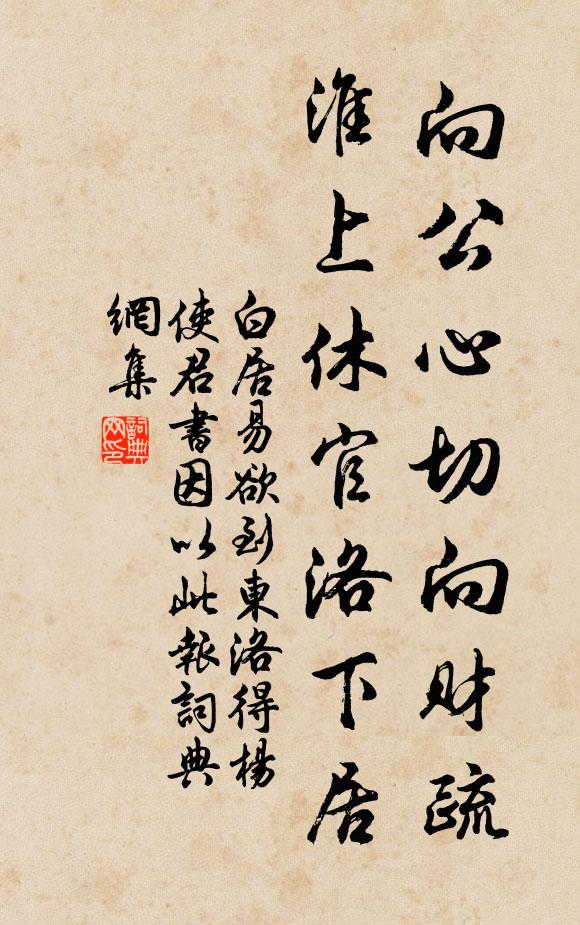 向公心切向財疏
淮上休官洛下居
白居易欲到東洛得楊
使君書因以此報詞典
網集
詞典
网印